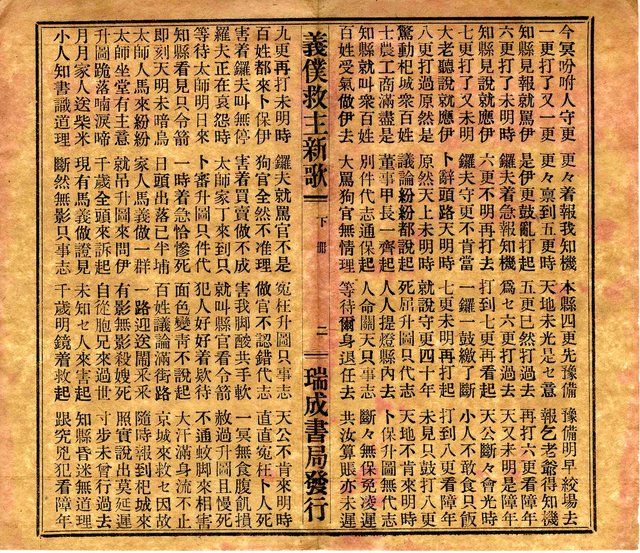 今冥吩咐人守更　更々着報我知機　本縣四更先豫備　豫備明早絞場去
一更打了又一更　更々稟到五更時　天地未光是乜意　報乞老爺得知機
知縣見報就罵伊　是伊更鼓亂打起　五更已然打過去　再打六更看障年
六更打了未明時　鑼夫着急報知機　為乜六更打過去　天又未明是障年
知縣見說就應伊　六更不明再打去　打到七更再看起　天公斷々會光時
七更打了又未明　鑼夫守更不肯當　一鑼一鼓繳了斷　小人不敢食只飯
大老聽說就應伊　卜辭頭路天明時　七更未明再打起　打到八更看障年
八更打過原然是　原然天上未明時　就說守更四十年　未見只鼓打八更
驚動杞城眾百姓　議論紛紛都說起　死屈升圖只代志　天地不肯來明時
士農工商滿盡是　董事甲長一齊起　八人提燈縣內去　卜保升圖無代志
知縣就叫眾百姓　別件代志通保起　人命關天只事志　斷々無保免凌遲
百姓受氣做伊去　大罵狗官無情理　等待爾身退任去　共汝算賬亦未遲
義僕救主新歌　下冊　二　瑞成書局發行
九更再打未明時　鑼夫就罵官不是　冤枉升圖只事志　天公不肯來明時
百姓都來卜保伊　狗官全然不准理　做官不認錯代志　直直冤枉卜人死
害着鑼夫叫無停　害着買賣做不成　害我脚酸共手軟　一冥無食腹飢損
羅夫正在哀怨時　太師家丁來到只　就叫縣官看令箭　赦過升圖且慢死
等待太師明日來　卜審升圖只件代　犯人好好着欵待　不通蚊脚來相害
知縣看見只令箭　一時着急恰慘死　面色變青不說起　大汗滿身流不止
即刻天明未暗烏　日頭出落已半埔　百姓議論滿街路　京城來救乜因故
太師人馬來紛紛　家人馬義做一群　一路迎送鬧釆釆　隨時報到杞城來
太師坐堂有主意　就吊升圖來問伊　有影無影殺嫂死　照實說出莫延遲
升圖跪落喘淚啼　千歲全頭來訴起　自從胞兄來過世　寸步未曾行過去
月月家人送柴米　現有馬義做證見　未知乜人來害起　知縣昏迷無道理
小人知書識道理　斷然無影只事志　千歲明鏡着救起　跟究兇犯看障年